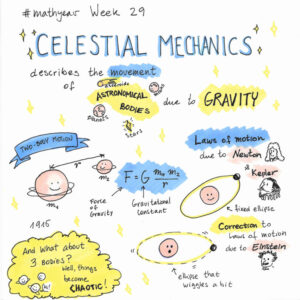 #mathyear Week 29
CELESTIAL MECHANICS
describes the movement
of
asteroids
ASTRONOMICAL
BODIES
due to GRAVITY
planets
stars
TWO-BODY MOTION
m₁
r
m₂
F = G m₁ m₂
r
Force
of
Gravity
Gravitational
Constant
Laws of motion
due to Newton
& Kepler
fixed ellipse
1915
Correction to
Laws of motion
due to Einstein
ellipse that
wiggles a bit
And What about
3 BODIES?
Well, things
become
CHAOTIC!